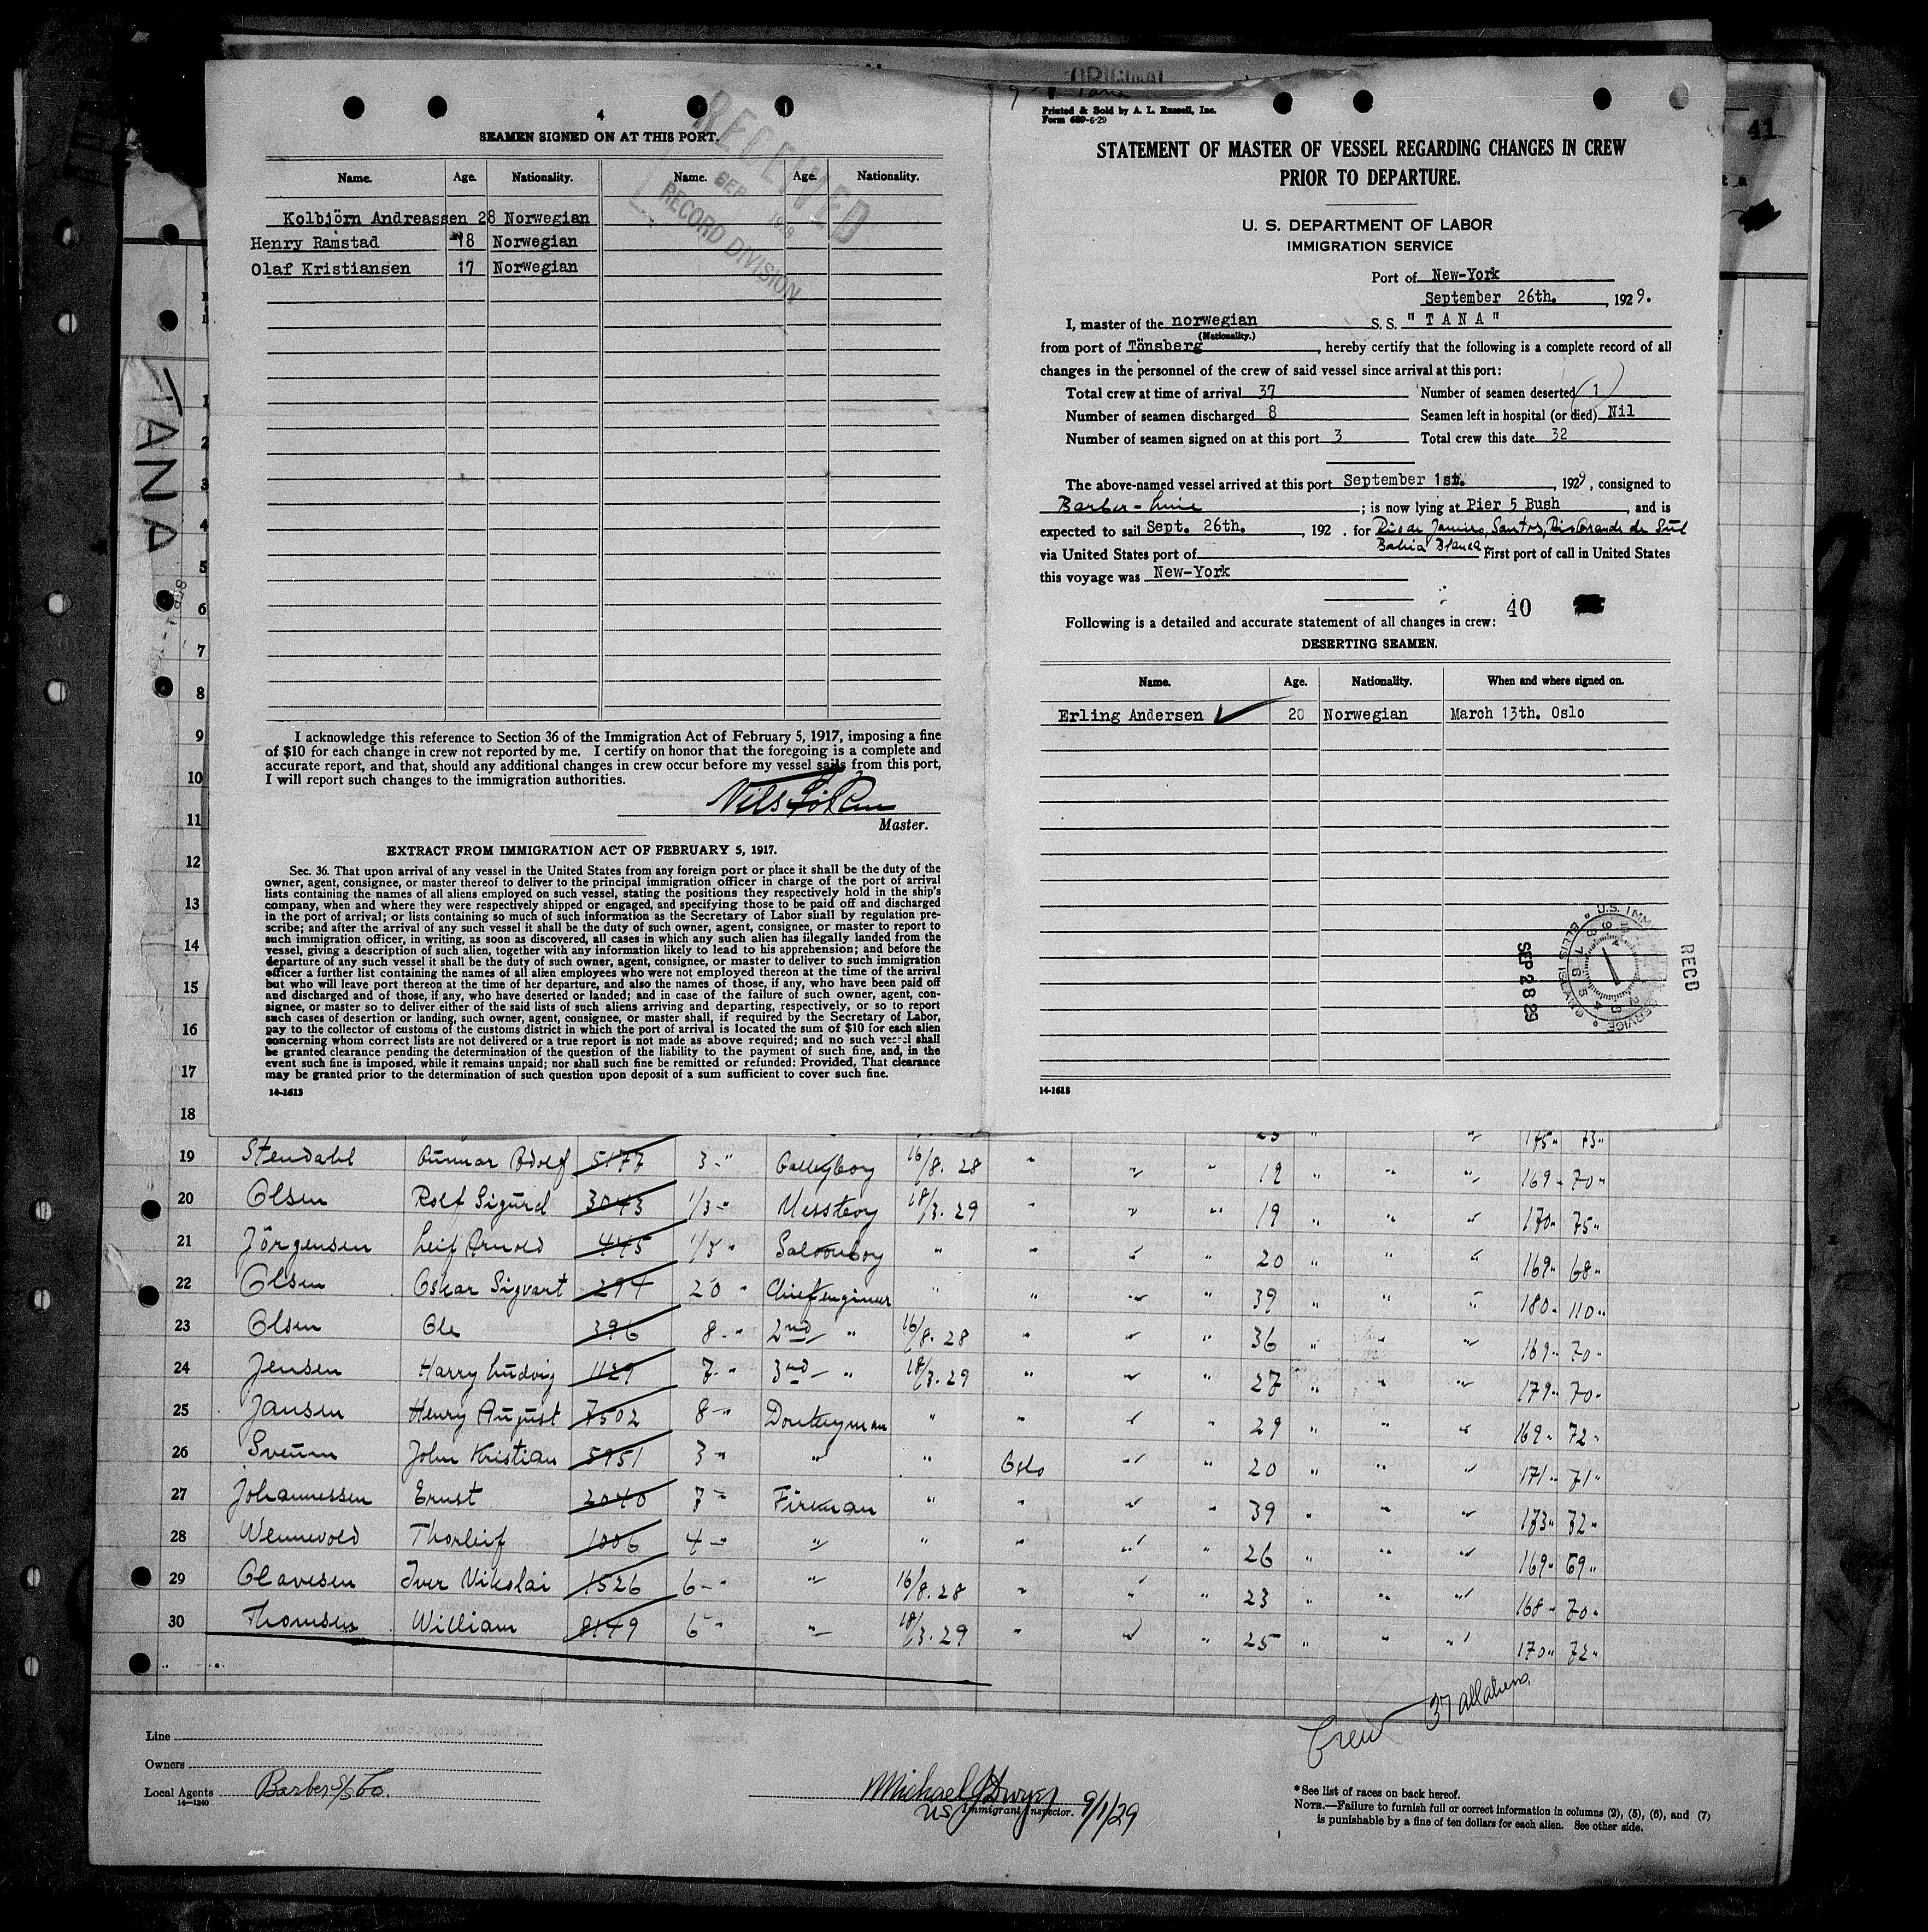 ORIGINAL
41
4
SEAMEN SIGNED ON AT THIS PORT.
Name. Age. Nationality. Name. Age. Nationality.
Kolbjörn Andreassen 28 Norwegian
Henry Ramstad 18 Norwegian
Olaf Kristiansen 17 Norwegian
RECEIVED
SEP
RECORD DIVISION
I acknowledge this reference to Section 36 of the Immigration Act of February 5, 1917, imposing a fine
of $10 for each change in crew not reported by me. I certify on honor that the foregoing is a complete and
accurate report, and that, should any additional changes in crew occur before my vessel sails from this port,
I will report such changes to the immigration authorities.
Nils
Master.
EXTRACT FROM IMMIGRATION ACT OF FEBRUARY 5, 1917.
Sec. 36. That upon arrival of any vessel in the United States from any foreign port or place it shall be the duty of the
owner, agent, consignee, or master thereof to deliver to the principal immigration officer in charge of the port of arrival
lists containing the names of all aliens employed on such vessel, stating the positions they respectively hold in the ship's
company, when and where they were respectively shipped or engaged, and specifying those to be paid off and discharged
in the port of arrival; or lists containing so much of such information as the Secretary of Labor shall by regulation pre-
scribe; and after the arrival of any such vessel it shall be the duty of such owner, agent, consignee, or master to report to
such immigration officer, in writing, as soon as discovered, all cases in which any such alien has illegally landed from the
vessel, giving a description of such alien, together with any information likely to lead to his apprehension; and before the
departure of any such vessel it shall be the duty of such owner, agent, consignee, or master to deliver to such immigration
officer a further list containing the names of all alien employees who were not employed thereon at the time of the arrival
but who will leave port thereon at the time of her departure, and also the names of those, if any, who have been paid off
and discharged and of those, if any, who have deserted or landed; and in case of the failure of such owner, agent, con-
signee, or master so to deliver either of the said lists of such aliens arriving and departing, respectively, or so to report
such cases of desertion or landing, such owner, agent, consignee, or master shall, if required by the Secretary of Labor,
pay to the collector of customs of the customs district in which the port of arrival is located the sum of $10 for each alien
concerning whom correct lists are not delivered or a true report is not made as above required; and no such vessel shall
be granted clearance pending the determination of the question of the liability to the payment of such fine, and, in the
event such fine is imposed, while it remains unpaid; nor shall such fine be remitted or refunded: Provided, That clearance
may be granted prior to the determination of such question upon deposit of a sum sufficient to cover such fine.
14-1613
Printed & Sold by A. L. Russell, Inc.
Form 689-6-29
STATEMENT OF MASTER OF VESSEL REGARDING CHANGES IN CREW
PRIOR TO DEPARTURE.
U. S. DEPARTMENT OF LABOR
IMMIGRATION SERVICE
Port of New-York
September 26th. , 1929.
I, master of the norwegian S. S. "TANA"
(Nationality.)
from port of Tönsberg, hereby certify that the following is a complete record of all
changes in the personnel of the crew of said vessel since arrival at this port:
Total crew at time of arrival 37 Number of seamen deserted 1
Number of seamen discharged 8 Seamen left in hospital (or died) Nil
Number of seamen signed on at this port 3 Total crew this date 32
The above-named vessel arrived at this port September 1st. , 1929, consigned to
Barber-Line ; is now lying at Pier 5 Bush , and is
expected to sail Sept. 26th. , 192 . for Rio de Janeiro, Santos, Rio Grande de Sul
Bahia Blanca.
via United States port of First port of call in United States
this voyage was New-York
40
Following is a detailed and accurate statement of all changes in crew:
DESERTING SEAMEN.
Name. Age. Nationality. When and where signed on.
Erling Andersen 20 Norwegian March 13th. Oslo
U.S. IMM SERVICE ELLIS ISLAND
SEP 28 29
RECD
14-1613
TANA
1
2
3
4
5
6
7
8
9
10
11
12
13
14
15
16
17
18
175" 73"
19 Stendahl Gunnar Adolf 5177 3 -" Galleyboy 16/8. 28 " " " 19 " " " 169 " 70 "
20 Olsen Rolf Sigurd 3043 1/3 -" Messboy 18/3. 29 " " " 19 " " " 170 " 75 "
21 Jörgensen Leif Arnold 445 1/3 " Saloonboy " " " " 20 " " " 169 " 68 "
22 Olsen Oskar Sigvart 294 20 " Chiefengineer " " " " 39 " " " 180 " 110 "
23 Olsen Ole 396 8 -" 2nd " 16/8. 28 " " " 36 " " " 169 " 70 "
24 Jensen Harry Ludvig 1129 7 -" 3rd " 18/3. 29 " " " 27 " " " 179 " 70 "
25 Jansen Henry August 7502 8 -" Donkeyman " " " " 29 " " " 169 " 72 "
26 Sveum John Kristian 5951 3 -" " " Oslo " " 20 " " " 171 " 71 "
27 Johannessen Ernst 2040 7 -" Fireman " " " " 39 " " " 173 " 72 "
28 Wennevold Thorleif 1006 4 -" " " " " " 26 " " " 169 " 69 "
29 Olavesen Iver Nikolai 1526 6 -" " 16/8. 28 " " " 23 " " " 168 " 70 "
30 Thomsen William 8149 6 -" " 18/3. 29 " " " 25 " " " 170 " 72 "
Crew 37 all aliens.
Line
Owners
Local Agents Barber S/S Co.
14-1240
Michael J Dwyer 9/1/29
US Immigrant Inspector.
*See list of races on back hereof.
NOTE.—Failure to furnish full or correct information in columns (2), (5), (6), and (7)
is punishable by a fine of ten dollars for each alien. See other side.